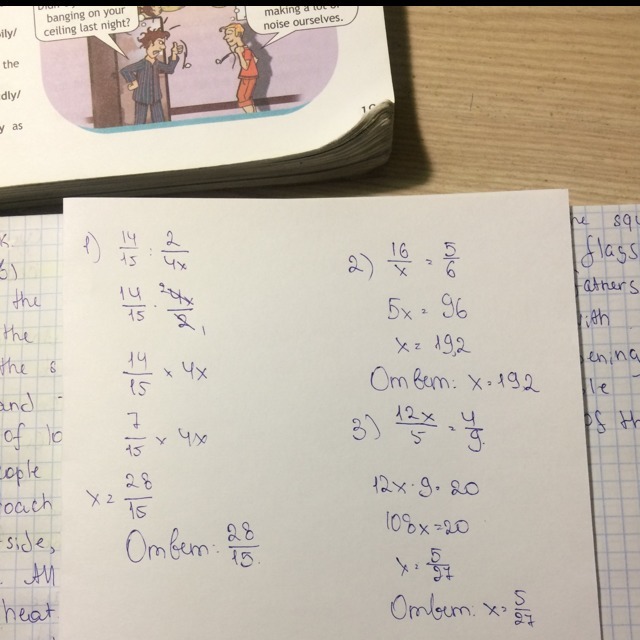 banging on your
ceiling last night?
making a lot of
noise ourselves.
ily/
the
dly/
y as
1) 14/15 : 2/4x
14/15 · 4x/2
14/15 × 4x
7/15 × 4x
x = 28/15
Ответ: 28/15.
2) 16/x = 5/6
5x = 96
x = 19,2
Ответ: x = 19,2
3) 12x/5 = 4/9
12x · 9 = 20
108x = 20
x = 5/27
Ответ: x = 5/27
the
the
the s
and
of lo
ople
oach
side,
. All
heat
flags
athers
ith
ening
le
of th